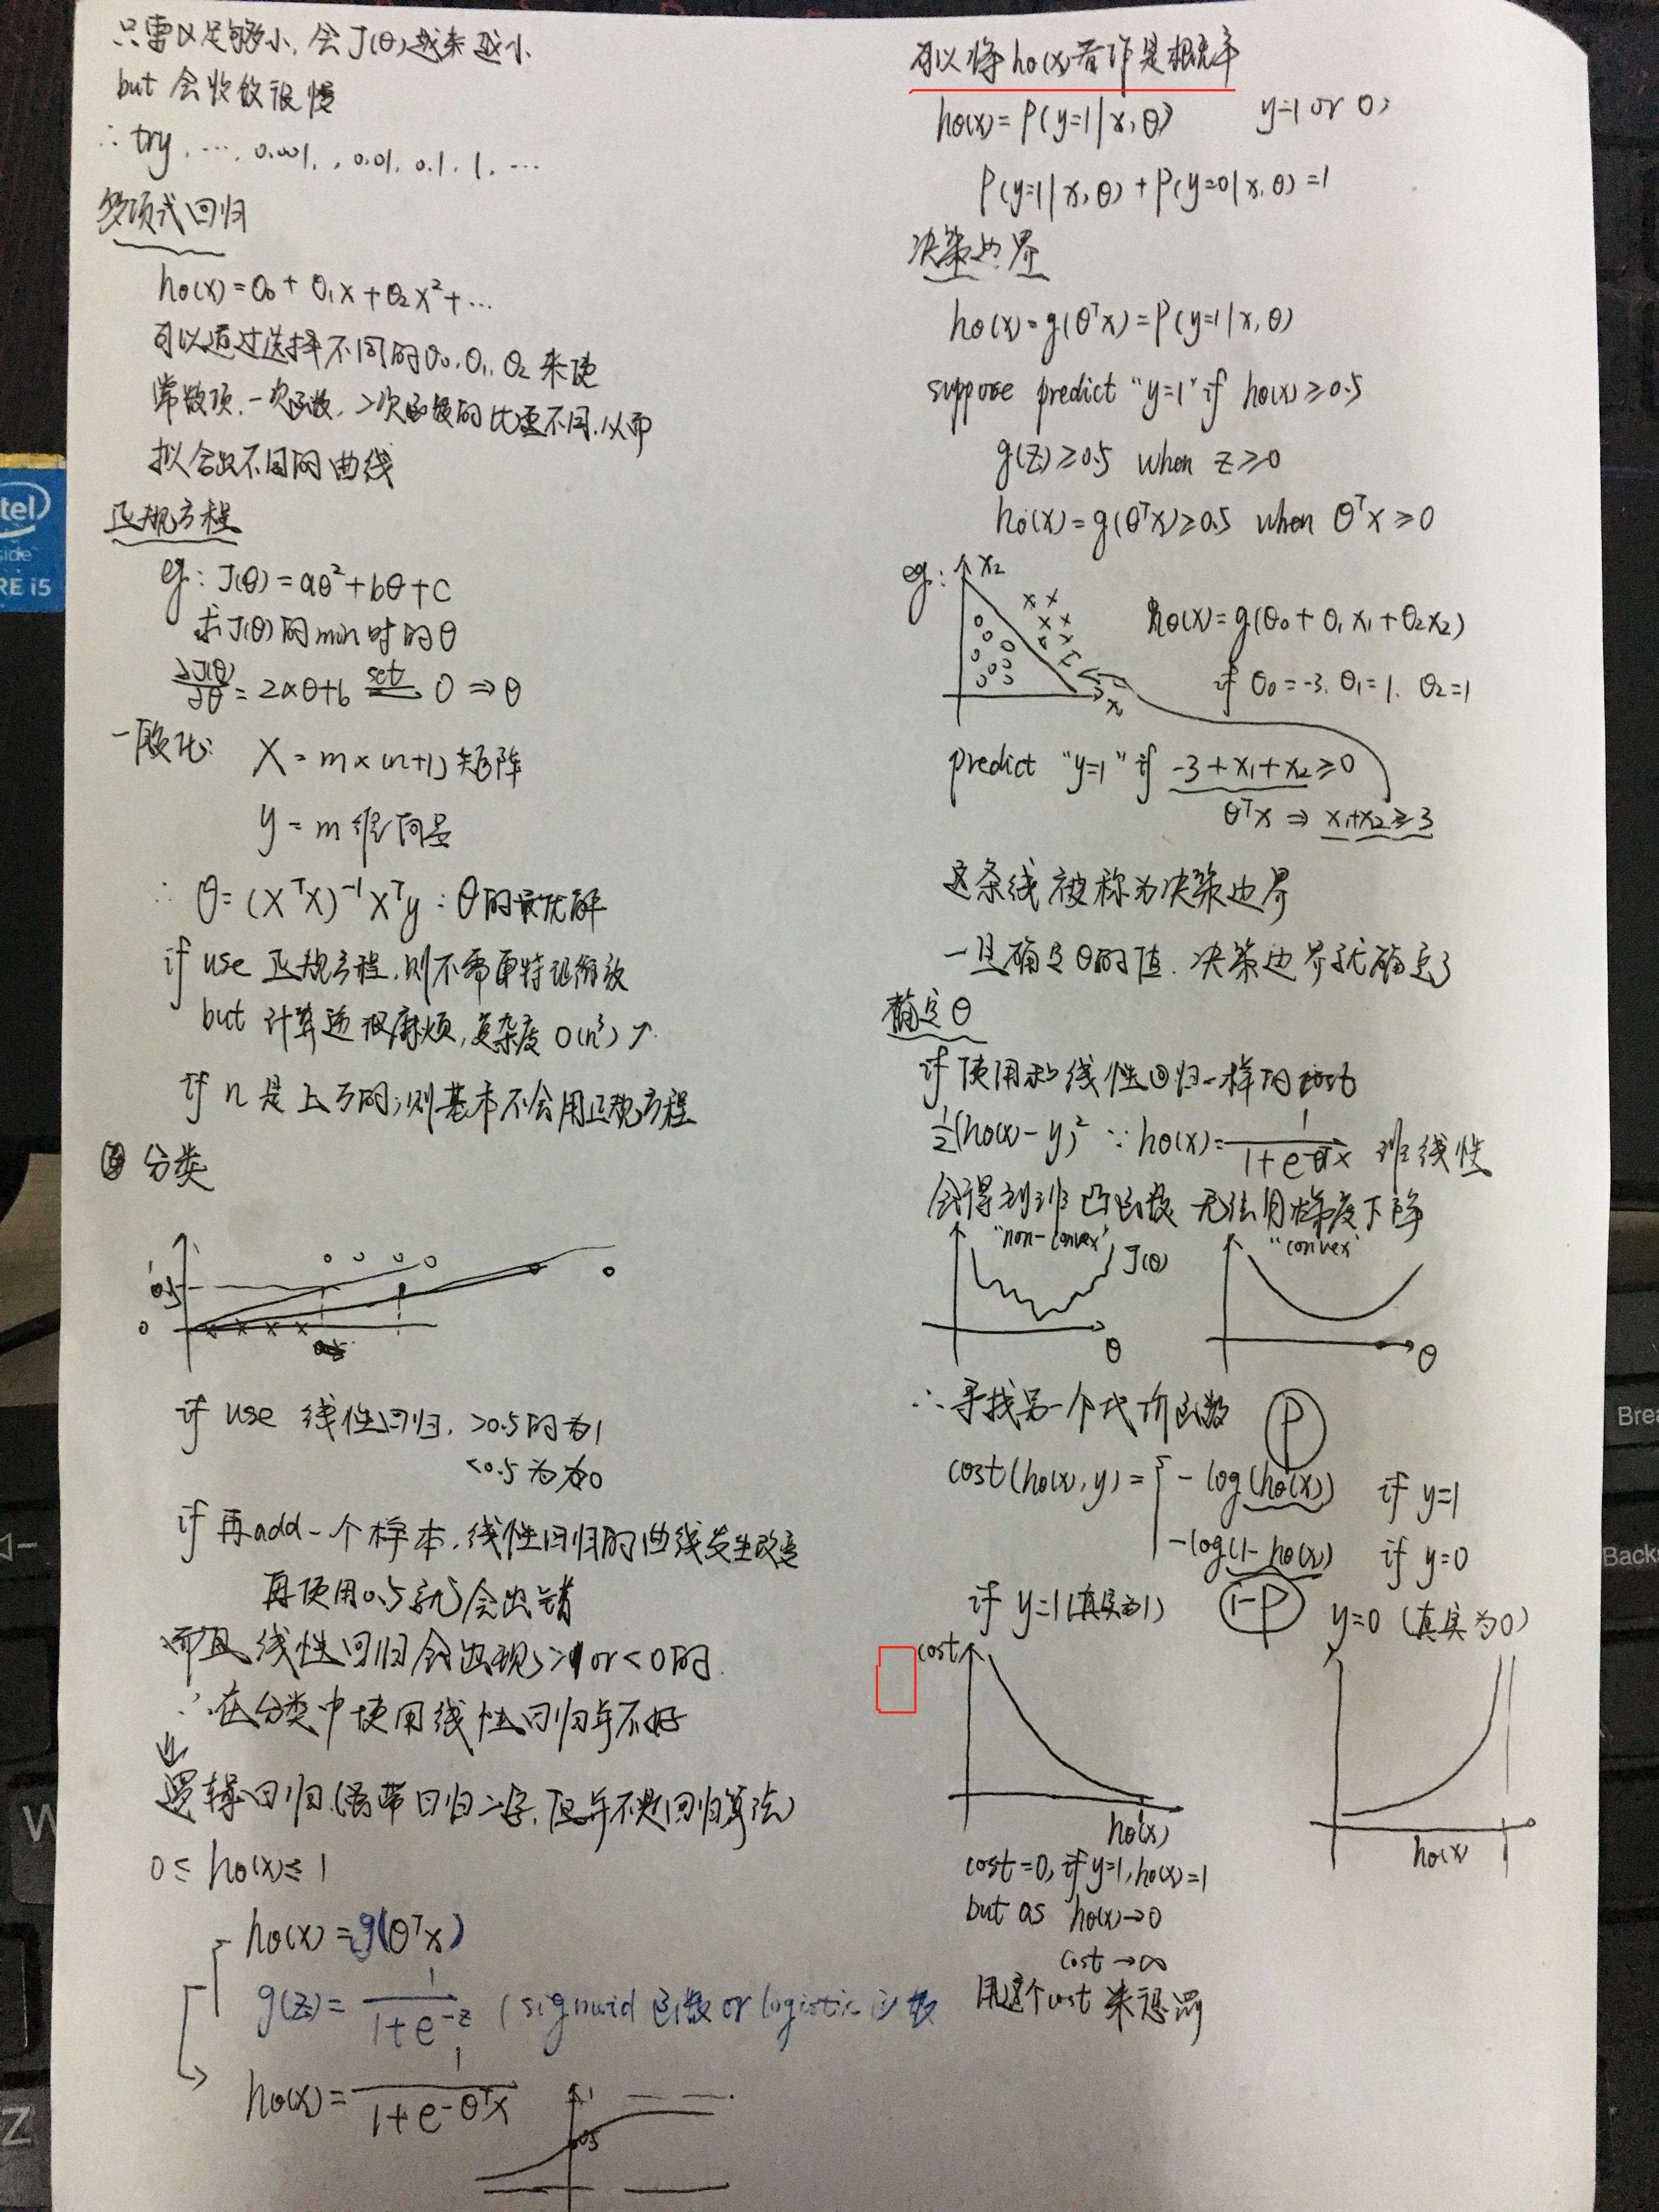 只需α足够小,会J(θ)越来越小
but 会收敛很慢
∴ try, …, 0.001, , 0.01, 0.1, 1, …
多项式回归
hθ(x)=θ₀+θ₁x+θ₂x²+…
可以通过选择不同的θ₀,θ₁,θ₂来使
常数项,一次函数,二次函数的比重不同,从而
拟合出不同的曲线
正规方程
eg: J(θ)=aθ²+bθ+c
求J(θ)的min时的θ
∂J(θ)/∂θ=2aθ+b set 0 ⇒ θ
一般化: X=m×(n+1)矩阵
y=m维向量
∴ θ=(XᵀX)⁻¹Xᵀy:θ的最优解
if use 正规方程,则不需要特征缩放
but 计算逆很麻烦,复杂度O(n³)↗
if n是上万的,则基本不会用正规方程
分类
1
0.5
0
if use 线性回归, >0.5的为1
<0.5为0
if 再add一个样本,线性回归的曲线发生改变
再使用0.5就会出错
而且线性回归会出现>1 or <0的
∴在分类中使用线性回归并不好
逻辑回归(虽带回归二字,但并不是回归算法)
0≤hθ(x)≤1
hθ(x)=g(θᵀx)
g(z)=1/(1+e^-z) (sigmoid函数 or logistic函数
hθ(x)=1/(1+e^-θᵀx)
1
0.5
可以将hθ(x)看作是概率
hθ(x)=P(y=1|x,θ) y=1 or 0
P(y=1|x,θ)+P(y=0|x,θ)=1
决策边界
hθ(x)=g(θᵀx)=P(y=1|x,θ)
suppose predict "y=1" if hθ(x)≥0.5
g(z)≥0.5 when z≥0
hθ(x)=g(θᵀx)≥0.5 when θᵀx≥0
eg: x₂
x₁
hθ(x)=g(θ₀+θ₁x₁+θ₂x₂)
if θ₀=-3, θ₁=1, θ₂=1
predict "y=1" if -3+x₁+x₂≥0
θᵀx ⇒ x₁+x₂≥3
这条线被称为决策边界
一旦确定θ的值,决策边界就确定了
确定θ
if 使用和线性回归一样的cost
½(hθ(x)-y)² ∵ hθ(x)=1/(1+e^-θᵀx) 非线性
会得到非凸函数 无法用梯度下降
"non-convex" J(θ) θ
"convex" θ
∴寻找另一个代价函数 P
cost(hθ(x),y)={ -log(hθ(x)) if y=1
-log(1-hθ(x)) if y=0
1-P
if y=1(真实为1)
y=0 (真实为0)
cost
hθ(x)
hθ(x) 1
cost=0, if y=1, hθ(x)=1
but as hθ(x)→0
cost→∞
用这个cost来惩罚
intel
inside
CORE i5
Break
Backs
W
Z